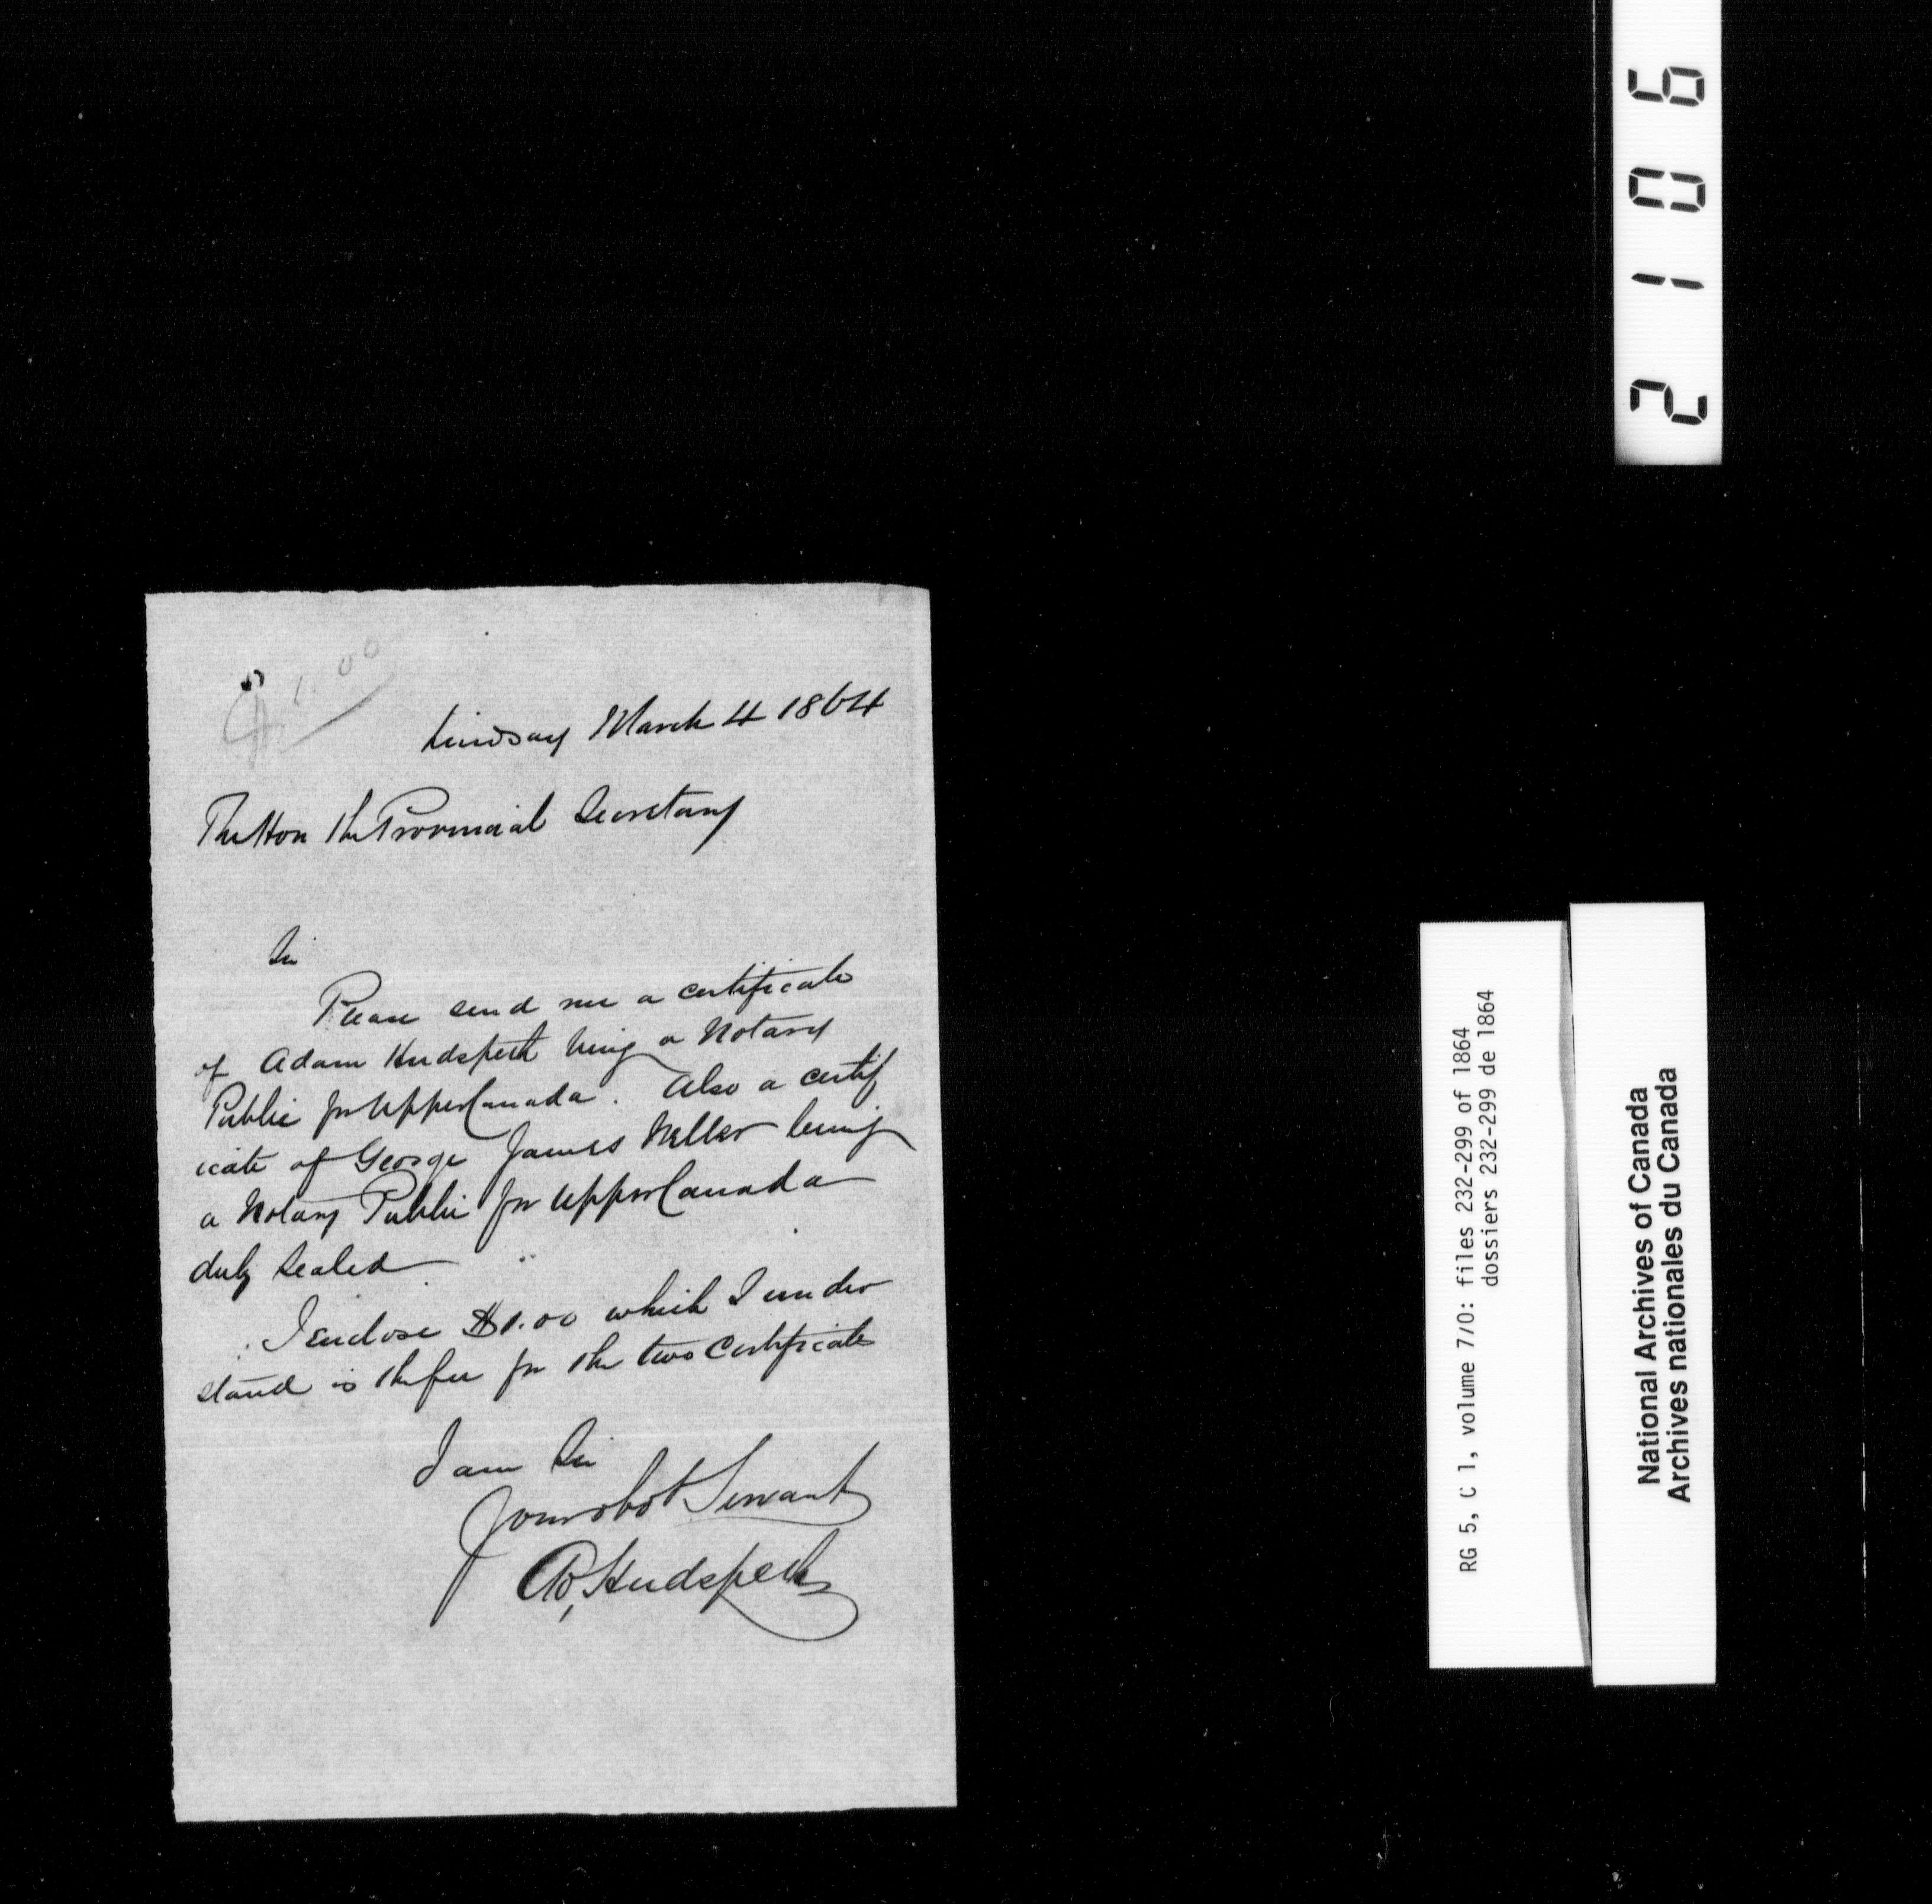 $1.00
Lindsay March 4 1864
The Hon the Provincial Secretary
Sir
Please send me a certificate
of Adam Hudspeth being a Notary
Public for Upper Canada. Also a certif
icate of George James Weller being
a Notary Public for Upper Canada
duly sealed
I enclose $1.00 which I under
stand is the fee for the two Certificate
I am Sir
Your obdt Servant
A, Hudspeth
2106
RG 5, C 1, volume 7/0: files 232-299 of 1864
dossiers 232-299 de 1864
National Archives of Canada
Archives nationales du Canada